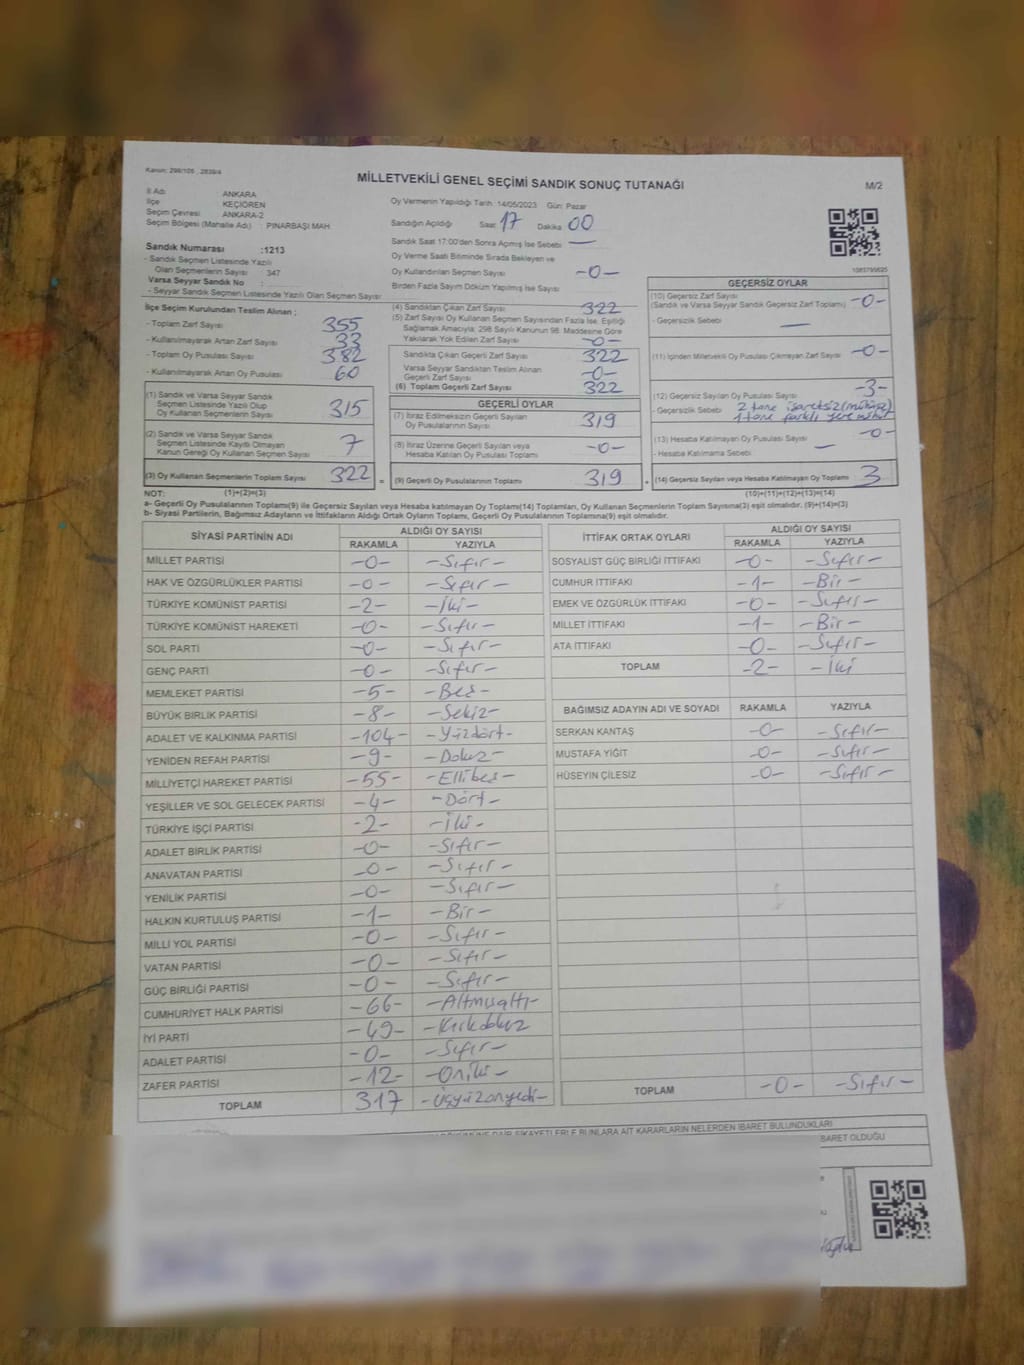 Kanun: 298/105 , 2839/4
MİLLETVEKİLİ GENEL SEÇİMİ SANDIK SONUÇ TUTANAĞI
M/2
İl Adı ANKARA
İlçe KEÇİÖREN
Seçim Çevresi ANKARA-2
Seçim Bölgesi (Mahalle Adı) : PINARBAŞI MAH.
Oy Vermenin Yapıldığı Tarih :14/05/2023 Gün: Pazar
Sandığın Açıldığı Saat 17 Dakika 00
Sandık Saat 17:00'den Sonra Açılmış İse Sebebi —
Sandık Numarası :1213
- Sandık Seçmen Listesinde Yazılı
Olan Seçmenlerin Sayısı 347
Varsa Seyyar Sandık No :
- Seyyar Sandık Seçmen Listesinde Yazılı Olan Seçmen Sayısı
Oy Verme Saati Bitiminde Sırada Bekleyen ve
Oy Kullandırılan Seçmen Sayısı -0-
Birden Fazla Sayım Döküm Yapılmış İse Sayısı
1083795625
İlçe Seçim Kurulundan Teslim Alınan ;
- Toplam Zarf Sayısı 355
- Kullanılmayarak Artan Zarf Sayısı 33
- Toplam Oy Pusulası Sayısı 382
- Kullanılmayarak Artan Oy Pusulası 60
(1) Sandık ve Varsa Seyyar Sandık
Seçmen Listesinde Yazılı Olup
Oy Kullanan Seçmenlerin Sayısı 315
(2) Sandık ve Varsa Seyyar Sandık
Seçmen Listesinde Kayıtlı Olmayan
Kanun Gereği Oy Kullanan Seçmen Sayısı 7
(3) Oy Kullanan Seçmenlerin Toplam Sayısı 322 =
(4) Sandıktan Çıkan Zarf Sayısı 322
(5) Zarf Sayısı Oy Kullanan Seçmen Sayısından Fazla İse, Eşitliği
Sağlamak Amacıyla, 298 Sayılı Kanunun 98. Maddesine Göre
Yakılarak Yok Edilen Zarf Sayısı -0-
Sandıkta Çıkan Geçerli Zarf Sayısı 322
Varsa Seyyar Sandıktan Teslim Alınan
Geçerli Zarf Sayısı -0-
(6) Toplam Geçerli Zarf Sayısı 322
GEÇERLİ OYLAR
(7) İtiraz Edilmeksizin Geçerli Sayılan
Oy Pusulalarının Sayısı 319
(8) İtiraz Üzerine Geçerli Sayılan veya
Hesaba Katılan Oy Pusulası Toplamı -0-
(9) Geçerli Oy Pusulalarının Toplamı 319 +
GEÇERSİZ OYLAR
(10) Geçersiz Zarf Sayısı
(Sandık ve Varsa Seyyar Sandık Geçersiz Zarf Toplamı) -0-
- Geçersizlik Sebebi —
(11) İçinden Milletvekili Oy Pusulası Çıkmayan Zarf Sayısı -0-
(12) Geçersiz Sayılan Oy Pusulası Sayısı -3-
- Geçersizlik Sebebi 2 tane işaretsiz (mühürsüz)
1 tane farklı yere mühür
(13) Hesaba Katılmayan Oy Pusulası Sayısı -0-
- Hesaba Katılmama Sebebi —
(14) Geçersiz Sayılan veya Hesaba Katılmayan Oy Toplamı 3
NOT: (1)+(2)=(3) (10)+(11)+(12)+(13)=(14)
a- Geçerli Oy Pusulalarının Toplamı(9) ile Geçersiz Sayılan veya Hesaba katılmayan Oy Toplamı(14) Toplamları, Oy Kullanan Seçmenlerin Toplam Sayısına(3) eşit olmalıdır. (9)+(14)=(3)
b- Siyasi Partilerin, Bağımsız Adayların ve İttifakların Aldığı Ortak Oyların Toplamı, Geçerli Oy Pusulalarının Toplamına(9) eşit olmalıdır.
SİYASİ PARTİNİN ADI ALDIĞI OY SAYISI
RAKAMLA YAZIYLA
MİLLET PARTİSİ -0- -Sıfır-
HAK VE ÖZGÜRLÜKLER PARTİSİ -0- -Sıfır-
TÜRKİYE KOMÜNİST PARTİSİ -2- -İki-
TÜRKİYE KOMÜNİST HAREKETİ -0- -Sıfır-
SOL PARTİ -0- -Sıfır-
GENÇ PARTİ -0- -Sıfır-
MEMLEKET PARTİSİ -5- -Beş-
BÜYÜK BİRLİK PARTİSİ -8- -Sekiz-
ADALET VE KALKINMA PARTİSİ -104- -Yüzdört-
YENİDEN REFAH PARTİSİ -9- -Dokuz-
MİLLİYETÇİ HAREKET PARTİSİ -55- -Ellibeş-
YEŞİLLER VE SOL GELECEK PARTİSİ -4- -Dört-
TÜRKİYE İŞÇİ PARTİSİ -2- -İki-
ADALET BİRLİK PARTİSİ -0- -Sıfır-
ANAVATAN PARTİSİ -0- -Sıfır-
YENİLİK PARTİSİ -0- -Sıfır-
HALKIN KURTULUŞ PARTİSİ -1- -Bir-
MİLLİ YOL PARTİSİ -0- -Sıfır-
VATAN PARTİSİ -0- -Sıfır-
GÜÇ BİRLİĞİ PARTİSİ -0- -Sıfır-
CUMHURİYET HALK PARTİSİ -66- -Altmışaltı-
İYİ PARTİ -49- -Kırkdokuz
ADALET PARTİSİ -0- -Sıfır-
ZAFER PARTİSİ -12- -Oniki-
TOPLAM 317 -Üçyüzonyedi-
İTTİFAK ORTAK OYLARI ALDIĞI OY SAYISI
RAKAMLA YAZIYLA
SOSYALİST GÜÇ BİRLİĞİ İTTİFAKI -0- -Sıfır-
CUMHUR İTTİFAKI -1- -Bir-
EMEK VE ÖZGÜRLÜK İTTİFAKI -0- -Sıfır-
MİLLET İTTİFAKI -1- -Bir-
ATA İTTİFAKI -0- -Sıfır-
TOPLAM -2- -İki
BAĞIMSIZ ADAYIN ADI VE SOYADI RAKAMLA YAZIYLA
SERKAN KANTAŞ -0- -Sıfır-
MUSTAFA YİĞİT -0- -Sıfır-
HÜSEYİN ÇİLESİZ -0- -Sıfır-
TOPLAM -0- -Sıfır-
DAİR ŞİKAYETLERLE BUNLARA AİT KARARLARIN NELERDEN İBARET BULUNDUKLARI
İBARET OLDUĞU